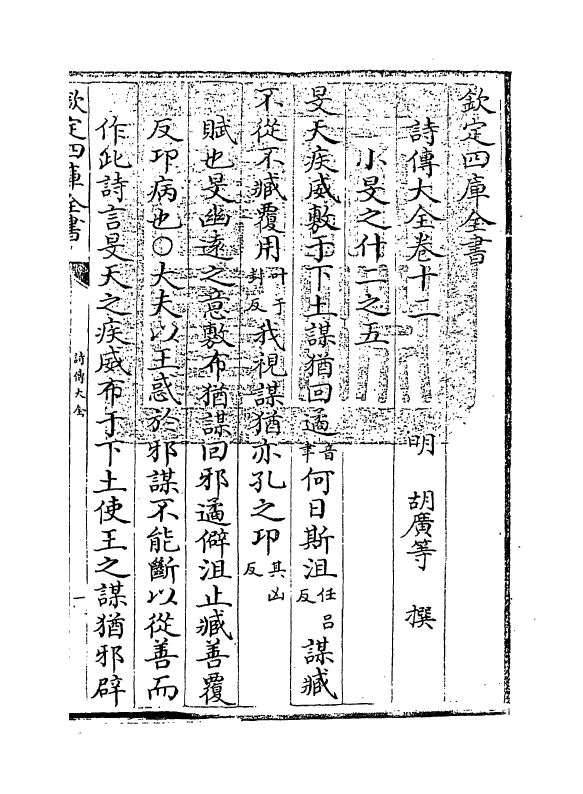 欽定四庫全書
詩傳大全卷十二
明 胡廣等 撰
小旻之什二之五
旻天疾威敷于下土謀猶回遹音聿何日斯沮任吕反謀臧
不從不臧覆用叶于封反我視謀猶亦孔之卭其凶反
賦也旻幽逺之意敷布猶謀回邪遹僻沮止臧善覆
反卭病也○大夫以王惑於邪謀不能斷以從善而
作此詩言旻天之疾威布于下土使王之謀猶邪辟
欽定四庫全書
詩傳大全
一